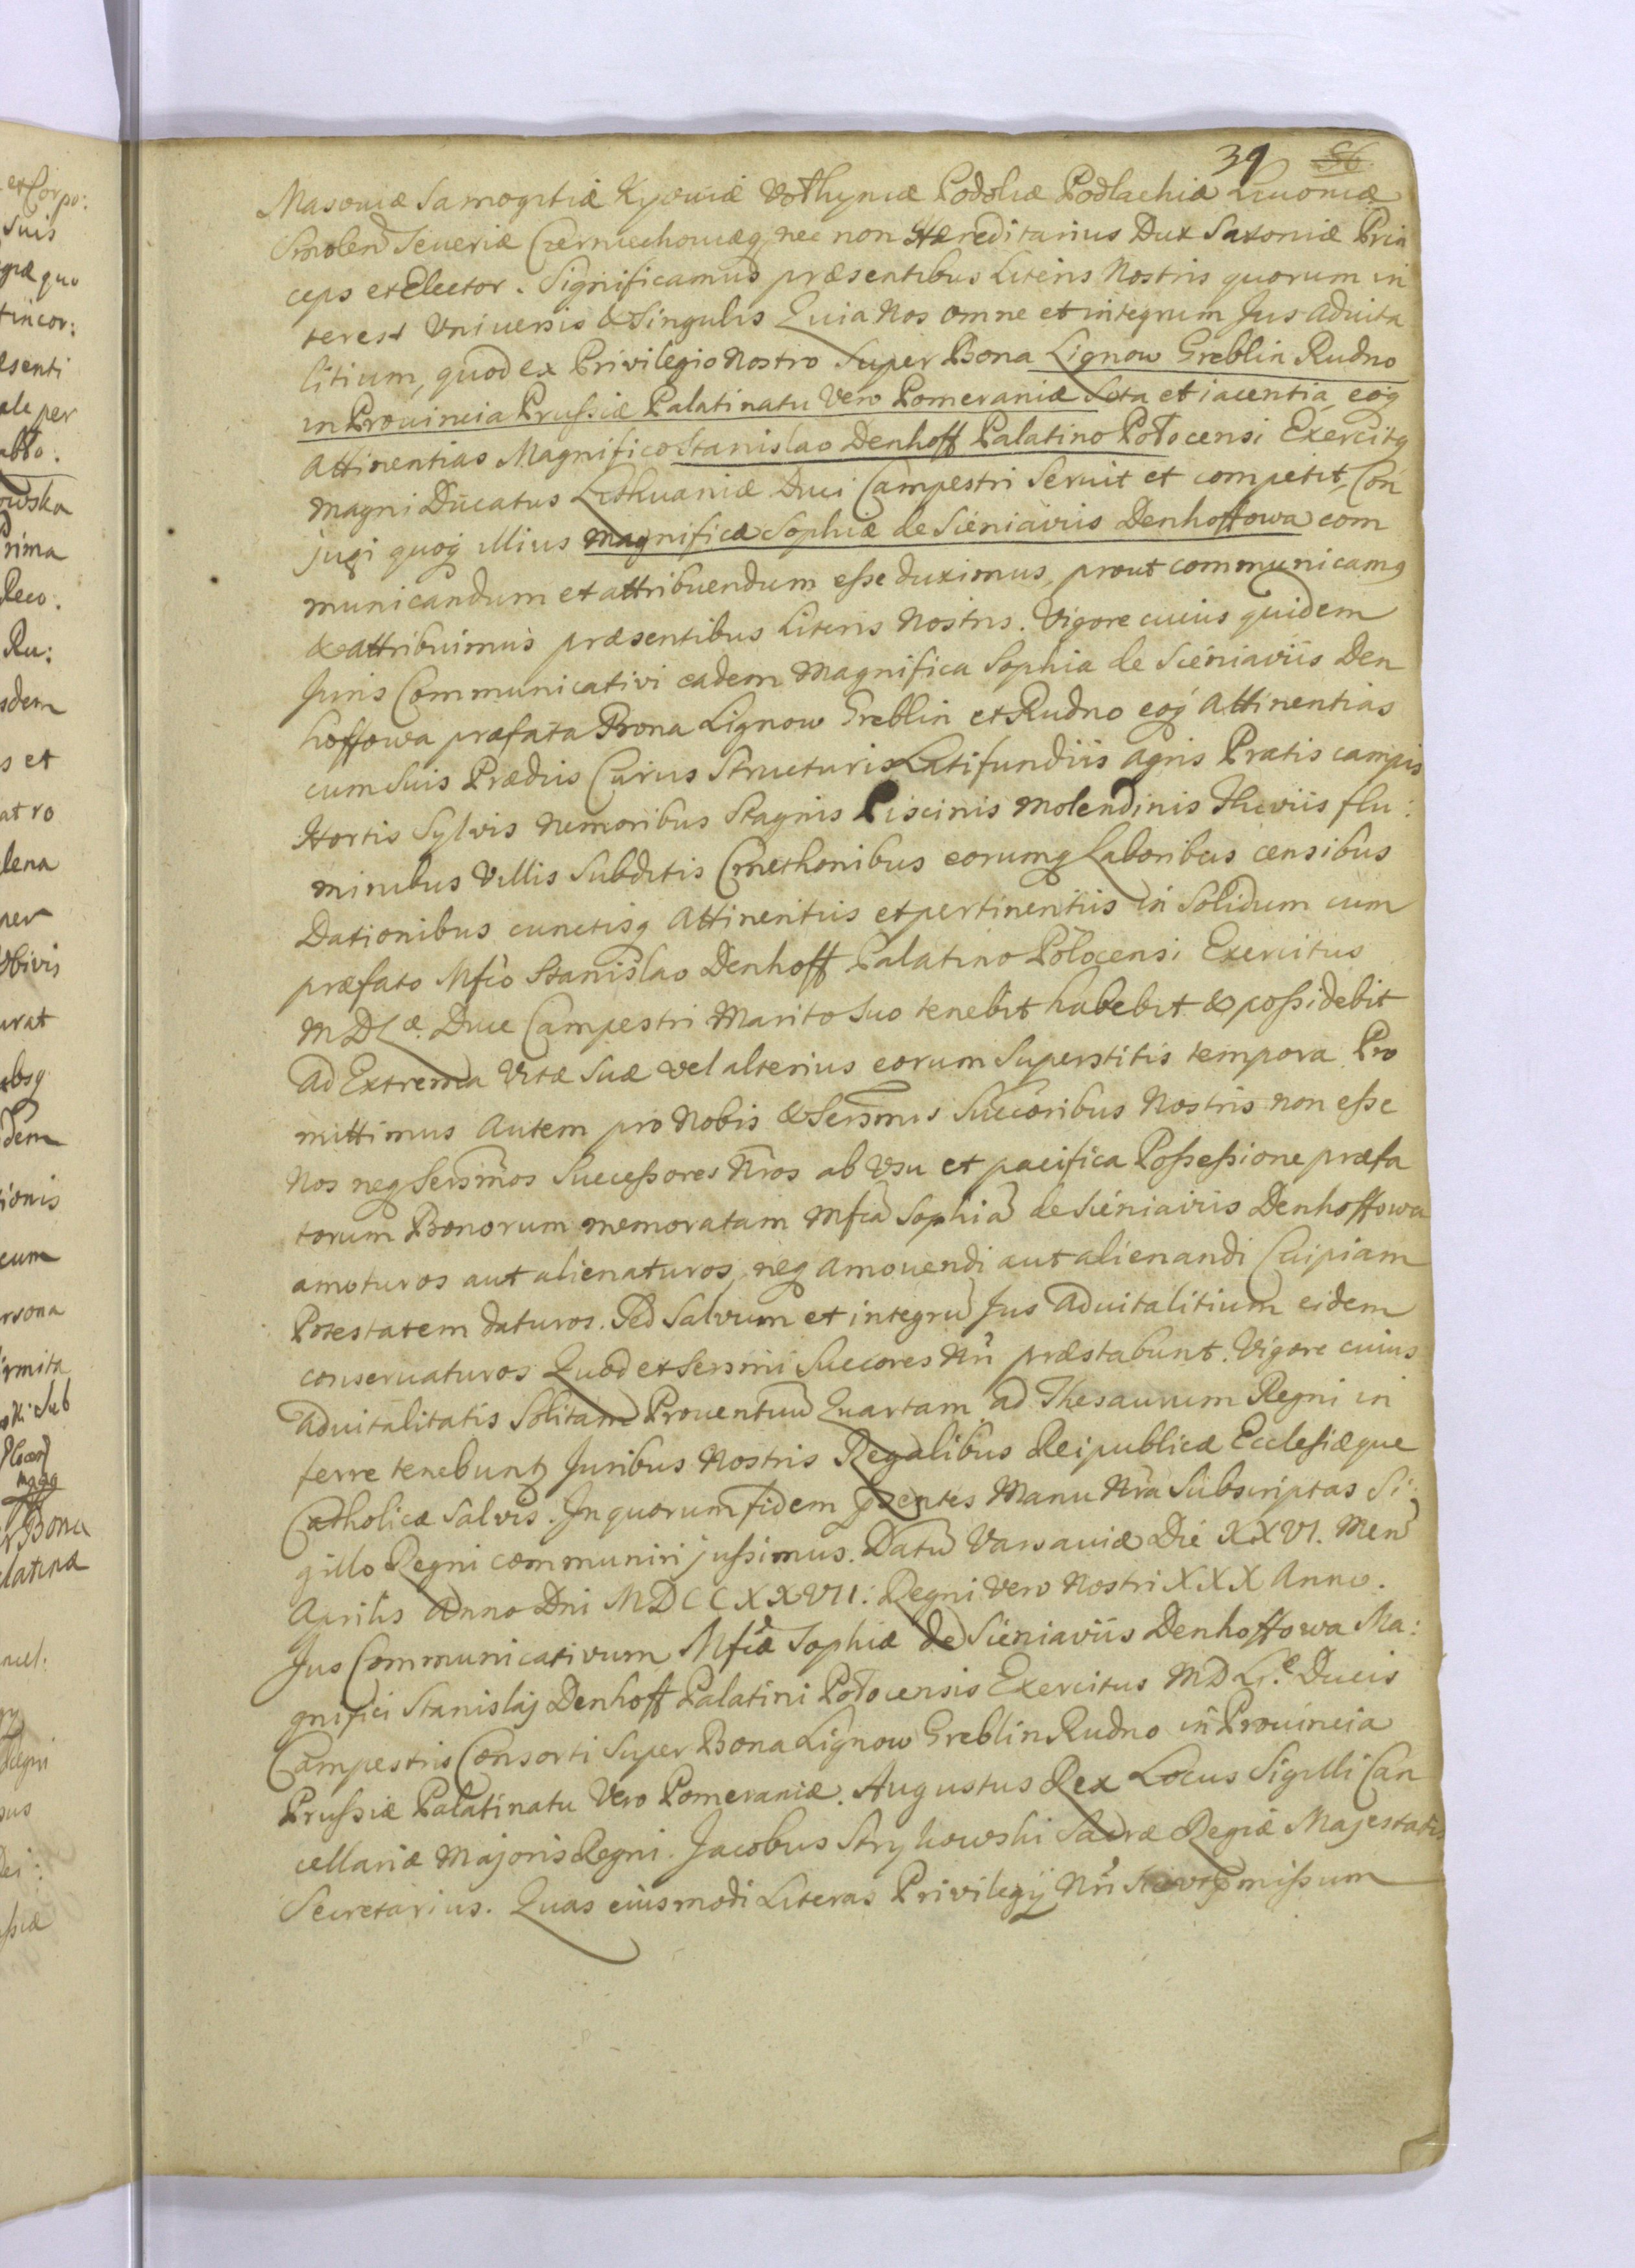 39 86
Masoviæ Samogitiæ Kyoviæ Vołhyniæ Podoliæ Podlachiæ Livoniæ
Smolen Severiæ Czerniechoviæq nec non Hæreditarius Dux Saxoniæ Prin
ceps et Elector. Significamus præsentibus Literis Nostris quorum in
terest Universis & Singulis Quia Nos omne et integrum Jus advita
litium, quod ex Privilegio Nostro Super Bona Lignow Greblin Rudno
in Provincia Prussiæ Palatinatu Vero Pomeraniæ Sita et iacentia, eoq
Attinentias Magnifico Stanislao Denhoff Palatino Połocensi Exercitq
Magni Ducatus Lithuaniæ Duci Campestri Servit et competit, Con
jugi quoq illius Magnificæ Sophiæ de Sieniaviis Denhoffowa com
municandum et attribuendum esse duximus, prout communicamq
& attribuimus præsentibus Literis Nostris. Vigore cuius quidem
Juris Communicativi eadem Magnifica Sophia de Sieniaviis Den
hoffowa præfata Bona Lignow Greblin et Rudno eoq Attinentias
cum Suis Prædiis Curiis Structuris Latifundiis Agris Pratis campis
Hortis Sylvis Nemoribus Stagnis Piscinis Molendinis Fluviis flu:
minibus Villis Subditis Cmethonibus eorumq Laboribus censibus
Dationibus cunctisq Attinentiis et pertinentiis in Solidum cum
præfato Mfico Stanislao Denhoff Palatino Połocensi Exercitus
MDLæ. Duce Campestri Marito Suo tenebit habebit & possidebit
ad Extrema Vitæ Suæ vel alterius eorum Superstitis tempora. Pro
mittimus Autem pro Nobis & Sersmis Succoribus Nostris non esse
Nos neq Sersmos Successores Nros ab Usu et pacifica Possessione præfa
torum Bonorum memoratam Mfica Sophia de Sieniaviis Denhoffowa
amoturos aut alienaturos, neq amovendi aut alienandi Cuipiam
Potestatem daturos. Sed Salvum et integru Jus Advitalitium eidem
conservaturos Quod et Sersmi Succores Nri præstabunt. Vigore cuius
advitalitatis Solitam Proventuu Quartam ad Thesaurum Regni in
ferre tenebuntq Juribus Nostris Regalibus Reipublicæ Ecclesiæque
Catholicæ Salvis. In quorum fidem pṣentes Manu Nra Subscriptas Si:
gillo Regni communiri jussimus. Datu Varsaviæ Die XXVI. Men
Aprilis Anno Dni MDCCXXVII: Regni Vero Nostri XXX Anno.
Jus Communicativum Mfcæ Sophiæ de Sieniaviis Denhoffowa Ma:
gnifici Stanislaj Denhoff Palatini Połocensis Exercitus MDLi. Ducis
Campestris Consorti Super Bona Lignow Greblin Rudno in Provincia
Prussiæ Palatinatu Vero Pomeraniæ. Augustus Rex Locus Sigilli Can
cellariæ Majoris Regni. Jacobus Strykowski Sacræ Regiæ Majestatis
Secretarius. Quas eiusmodi Literas Privilegij Nri pmissum